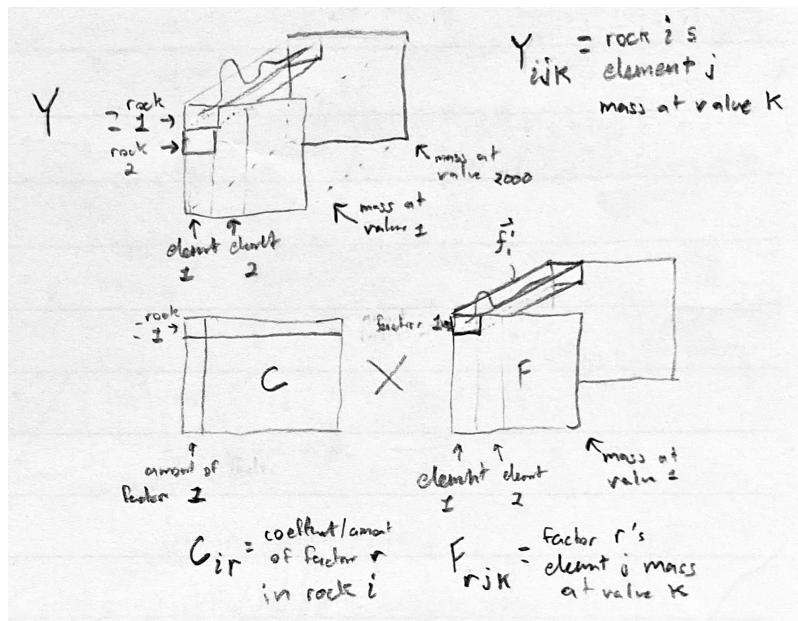 Y
Y ijk = rock i's
element j
mass at value k
rock
= 1 →
rock →
2
mass at
value 2000
mass at
value 1
element
1
2
f₁
= rock
1 →
factor 1
C
X
F
amount of
factor 1
element
1
2
mass at
value 1
C ir = 
of factor r
in rock i
F rjk = factor r's
j mass
at value k